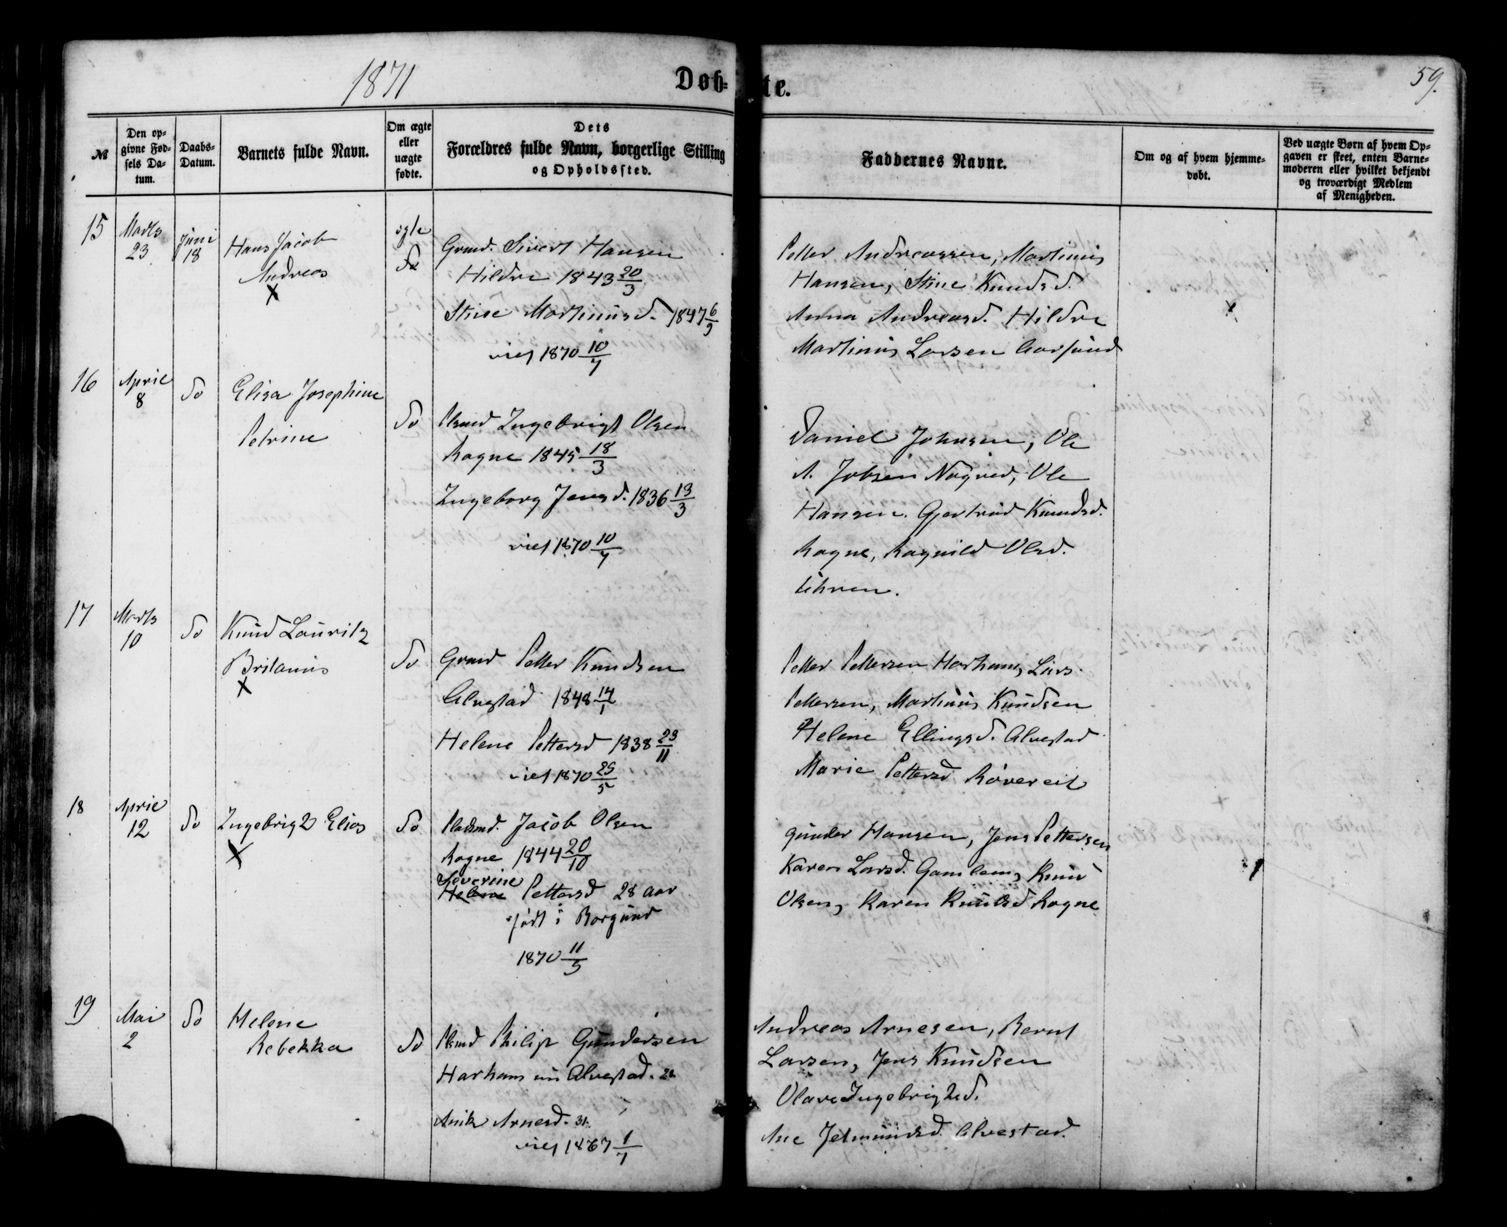 1871
Døb-
te.
59.
№
Den op-
givne Fød-
sels Da-
tum.
Daabs-
Datum.
Barnets fulde Navn.
Om ægte
eller
uægte
fødte.
Dets
Forældres fulde Navn, borgerlige Stilling
og Opholdssted.
Faddernes Navne.
Om og af hvem hjemme-
døbt.
Ved uægte Børn af hvem Op-
gaven er skeet, enten Barne-
moderen eller hvilket bekjendt
og troværdigt Medlem
af Menigheden.
15
Marts
23
Juni
18
Hans Jacob
Andreas
X
egte
Do
Grmd. Sivert Hansen
Hildre 1843 20/3
Stine Martinusd. 1847 6/9
viet 1870 10/7
Petter Andreassen, Martinus
Hansen, Stine Knudsd.
Anna Andreasd. Hildre
Martinus Larsen
16
April
8
Do
Elisa Josephine
Petrine
Do
Ingebrigt Olsen
Rogne 1845 18/3
Ingeborg Jensd. 1836 13/3
viet 1870 10/7
Daniel Johnsen, Ole
A. Jobsen Nogved, Ole
Hansen. Gjertrud Knudsd.
Rogne, Ragnild Olsd.
Uhren.
17
Marts
10
Do
Knud Lauritz
Britanus
X
Do
Grmd Petter Knudsen
Alvestad 1848 14/1
Helene Pettersd 1838 23/11
viet 1870 25/5
Petter Pettersen Harham, Lars
Pettersen, Martinus Knudsen
Helene Ellingsd. Alvestad
Marie Pettersd Røvereit
18
April
12
Do
Ingebrigt Elias
X
Do
Pladsmd. Jacob Olsen
Rogne 1844 20/10
Severine
Helene Pettersd 28 aar
født i Borgund
1870 11/5
Gunder Hansen, Jens Pettersen
Karen Larsd. Gamlem, Knud
Olsen, Karen Knudsd Rogne
19
Mai
2
Do
Helene
Rebekka
Do
Philip Gundersen
Harham nu Alvestad. 28
Anik Arnesd. 31
viet 1867 1/7
Andreas Arnesen, Bernt
Larsen, Jens Knudsen
Olave Ingebrigtsd.
Ane Jetmundsd Alvestad.